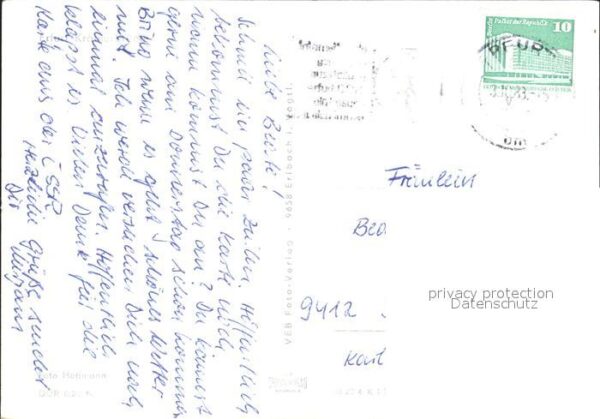 Liebe Beate!
Schnell ein paar Zeilen. Hoffentlich
bekommst Du die Karte noch.
Wann kommst Du an? Du kannst
gerne am Donnerstag schon kommen
Büro wenn es geht schönes Wetter
mit. Ich werde versuchen Dich noch
einmal anzurufen. Hoffentlich
klappt es. Vielen Dank für die
Karte aus der ČSSR
Herzliche Grüße sendet
Dir
Foto Hofmann
DDR
VEB Foto-Verlag · 9658 Erlbach i. Vogtl.
Palast der Republik
10
Fräulein
Bea
9412
privacy protection
Datenschutz